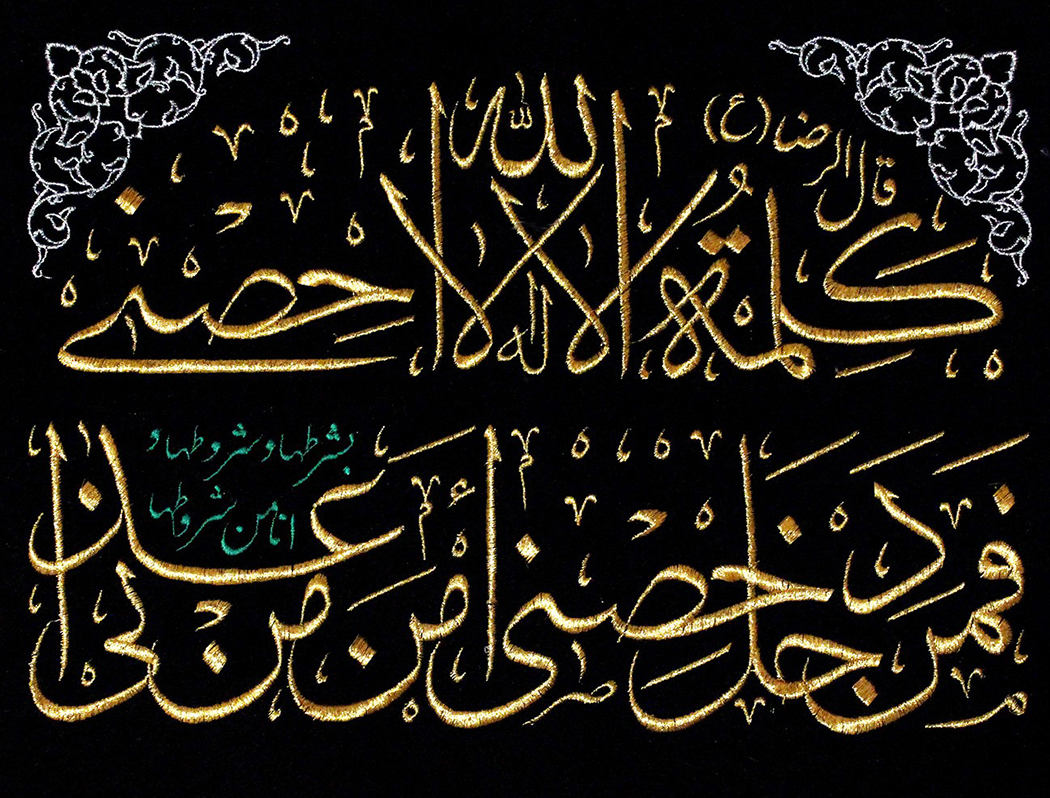 قال الرضا (ع)
كلمة لا اله الا الله حصني
فمن دخل حصني امن من عذابي
بشرطها و شروطها و
انا من شروطها